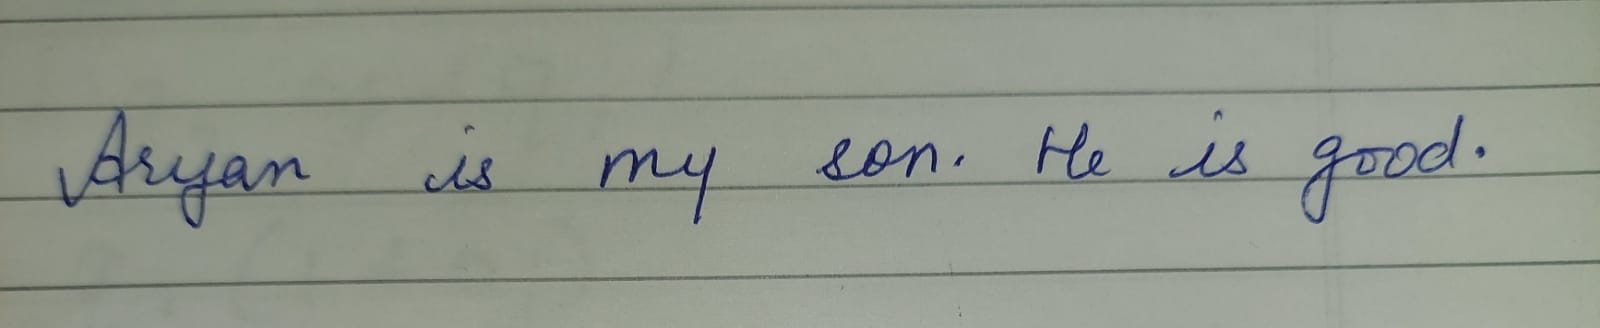 Aryan is my son. He is good.